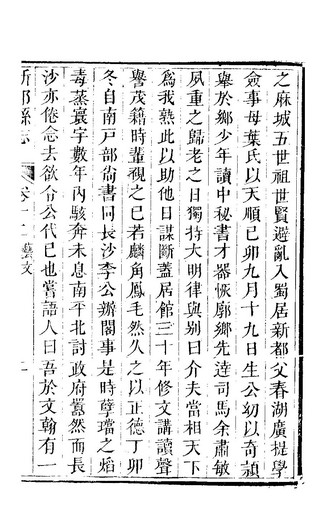 之麻城五世祖世賢避亂入蜀居新都父春湖廣提學
僉事母葉氏以天順己卯九月十九日生公幼以奇穎
舉於鄉少年讀中秘書才器恢廓鄉先達司馬余肅敏
夙重之歸老之日獨持大明律與別曰介夫當相天下
為我熟此以助他日謀斷蓋居館三十年修文講讀聲
譽茂籍時輩視之已若麟角鳳毛然久之以正德丁卯
冬自南戸部尚書同長沙李公辦閣事是時孽璫之焰
毒蒸寰宇數年內駭奔未息南平北討政府囂然而長
沙亦倦念去欲令公代已也嘗語人曰吾於文翰有一
新都縣志
卷十二
藝文